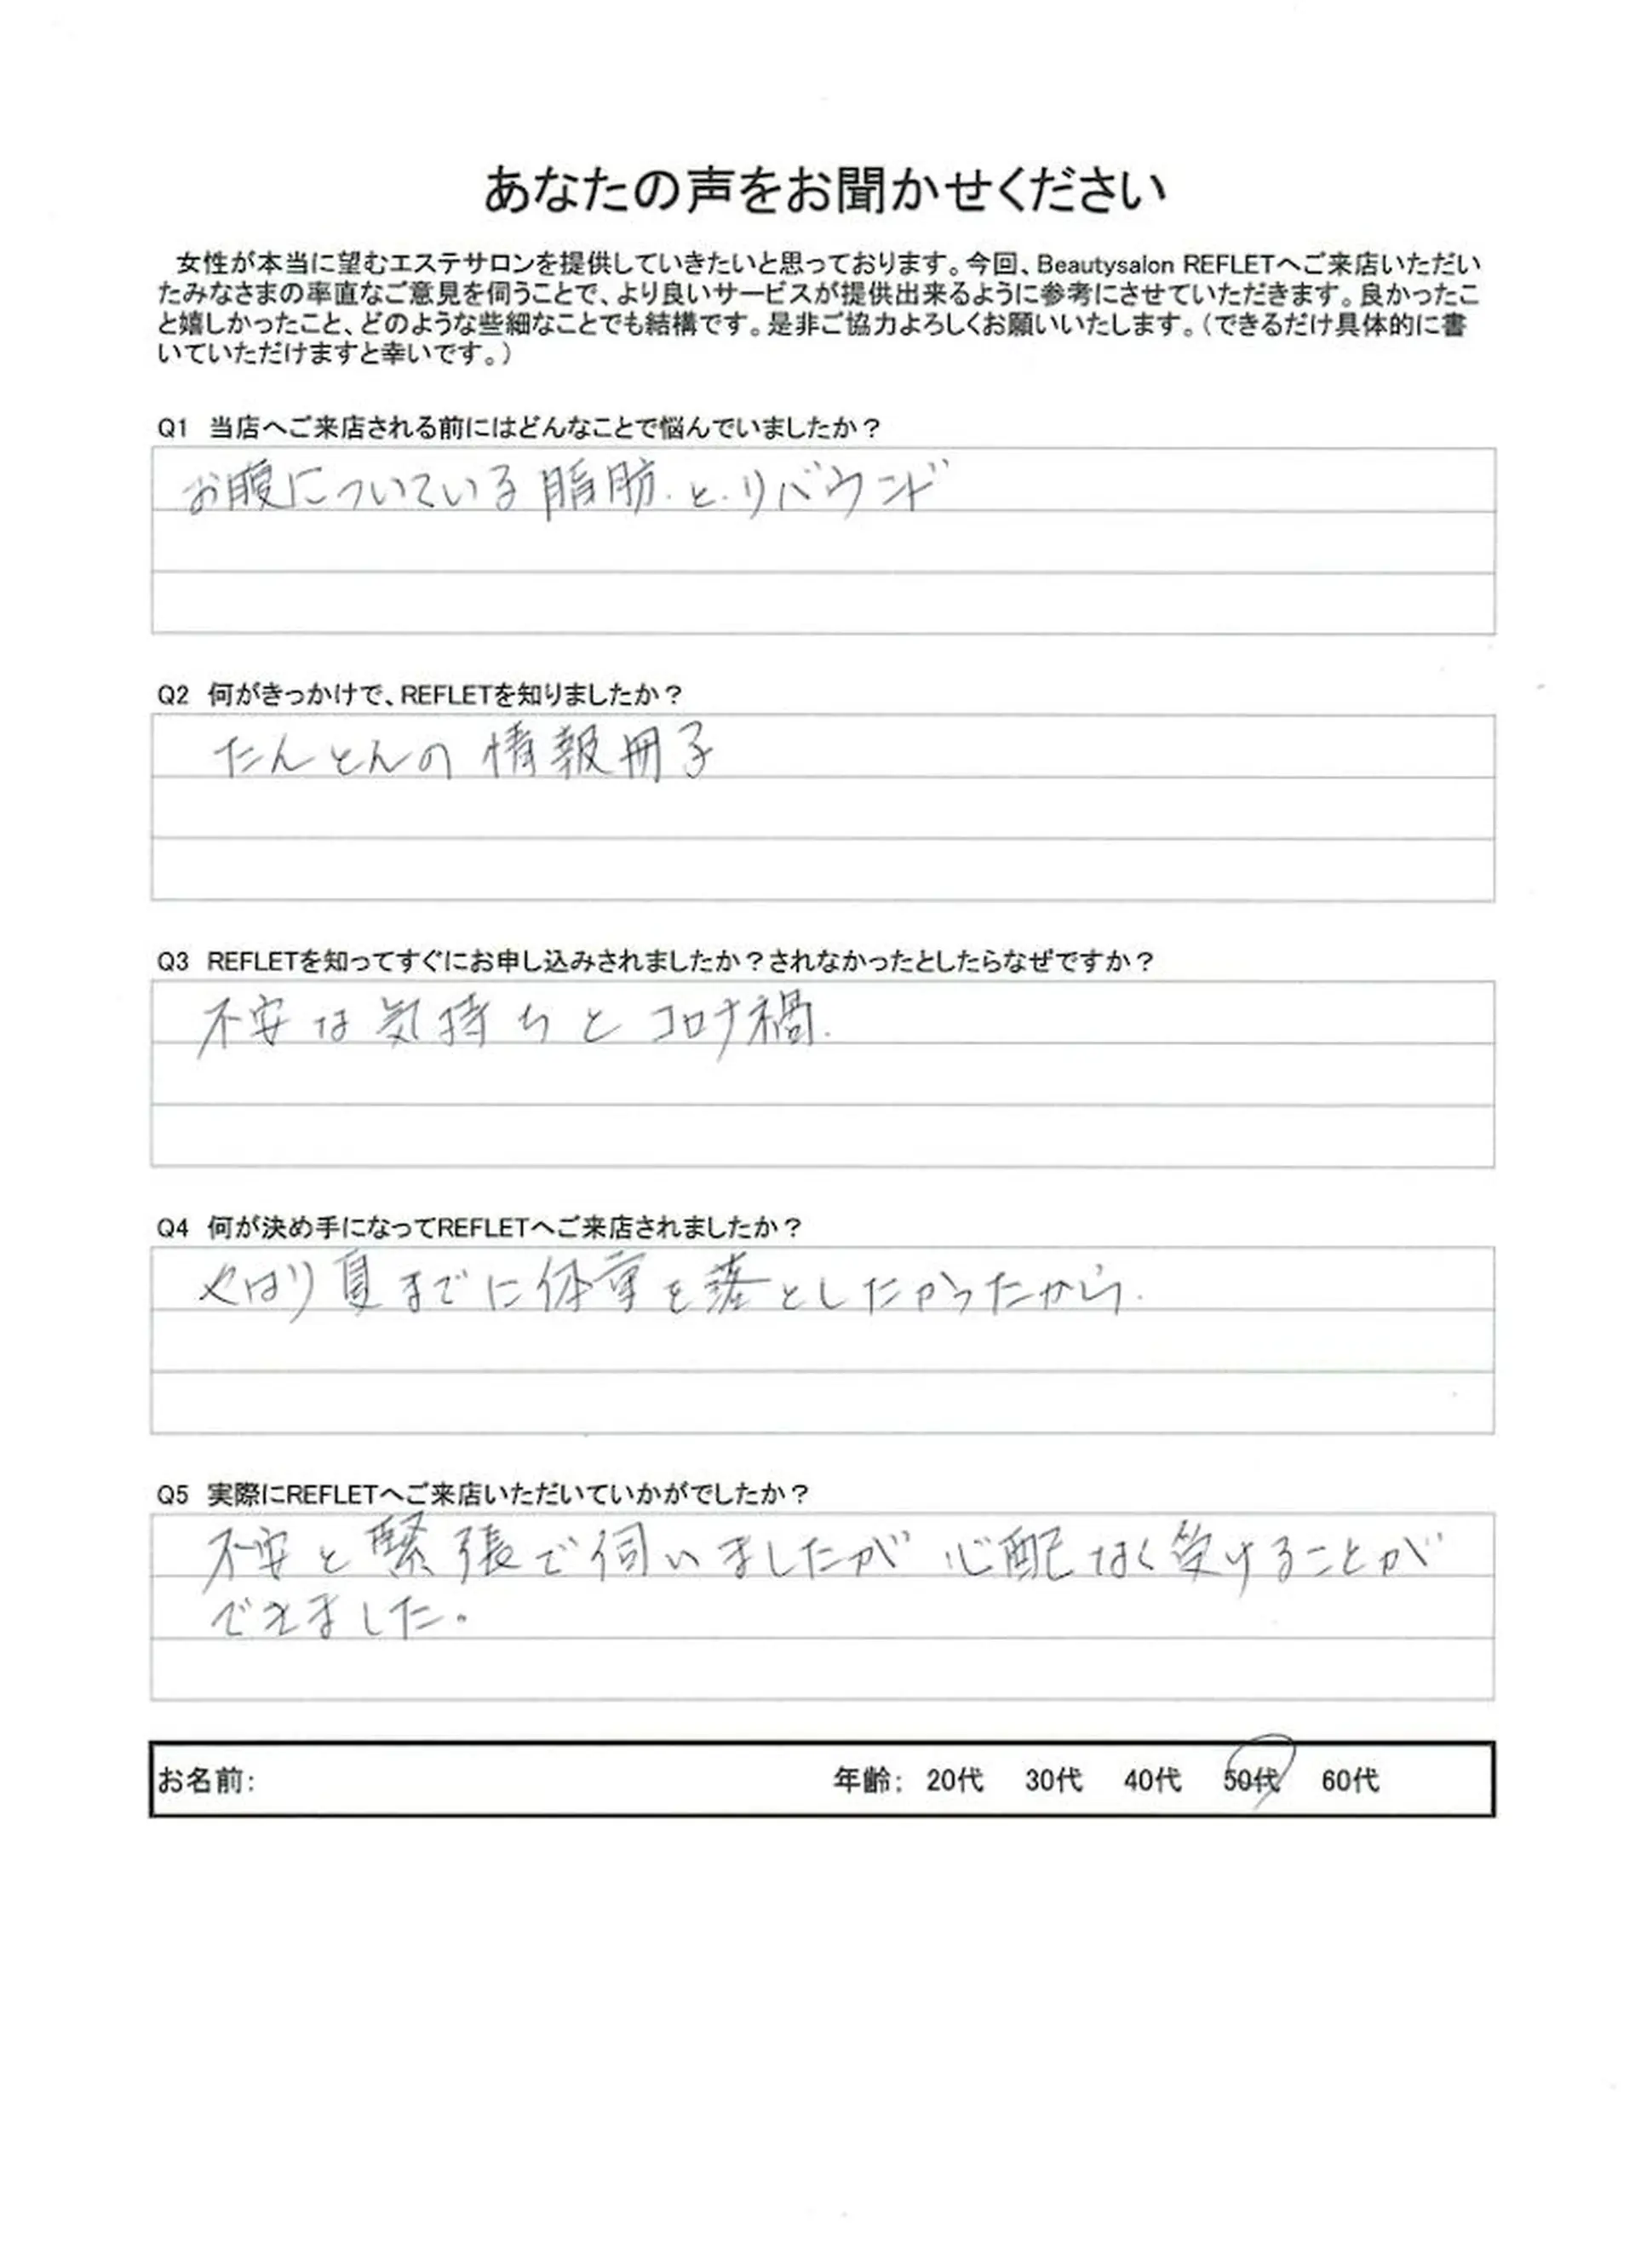 あなたの声をお聞かせください
女性が本当に望むエステサロンを提供していきたいと思っております。今回、Beautysalon REFLETへご来店いただい
たみなさまの率直なご意見を伺うことで、より良いサービスが提供出来るように参考にさせていただきます。良かったこ
と嬉しかったこと、どのような些細なことでも結構です。是非ご協力よろしくお願いいたします。（できるだけ具体的に書
いていただけますと幸いです。）
Q1 当店へご来店される前にはどんなことで悩んでいましたか？
お腹についている脂肪.と.リバウンド
Q2 何がきっかけで、REFLETを知りましたか？
たんとんの情報冊子
Q3 REFLETを知ってすぐにお申し込みされましたか？されなかったとしたらなぜですか？
不安な気持ちとコロナ禍.
Q4 何が決め手になってREFLETへご来店されましたか？
やはり夏までに体重を落としたかったから.
Q5 実際にREFLETへご来店いただいていかがでしたか？
不安と緊張で伺いましたが心配なく受けることが
できました。
お名前: 年齢: 20代 30代 40代 50代 60代